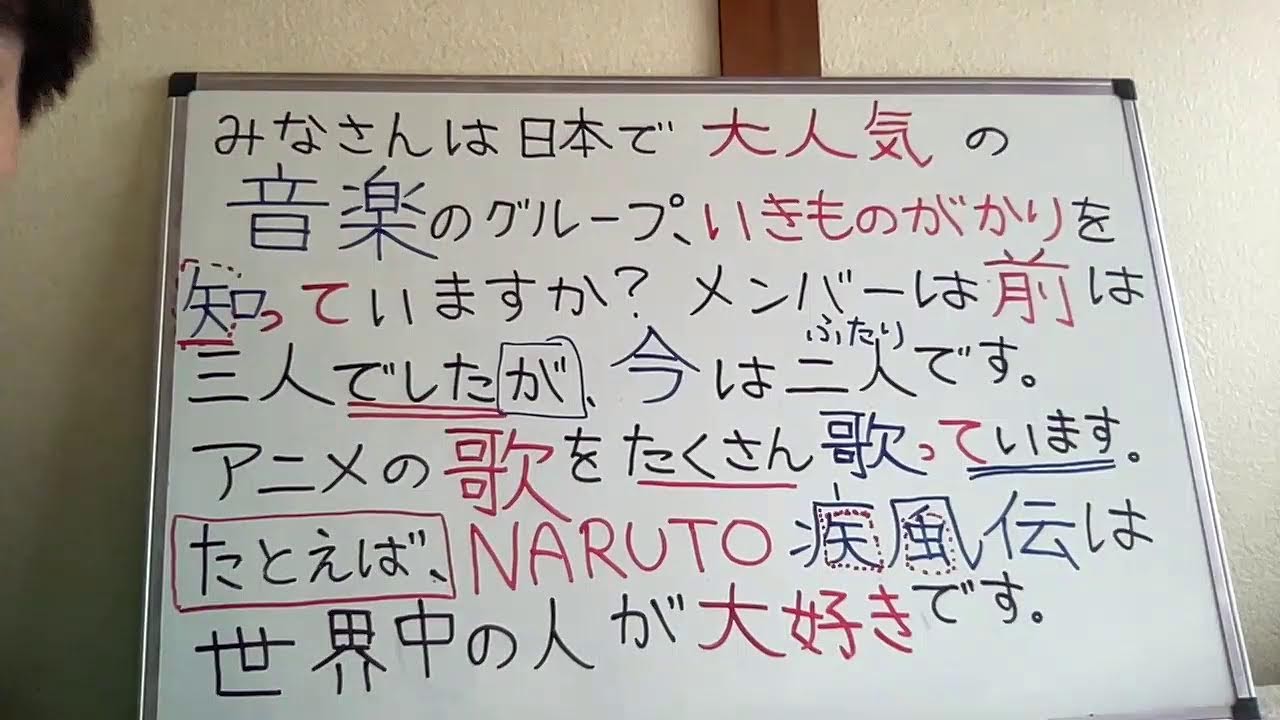 みなさんは日本で大人気の
音楽のグループ、いきものがかりを
知っていますか?メンバーは前は
ふたり
三人でしたが、今は二人です。
アニメの歌をたくさん歌っています。
たとえば、NARUTO疾風伝は
世界中の人が大好きです。